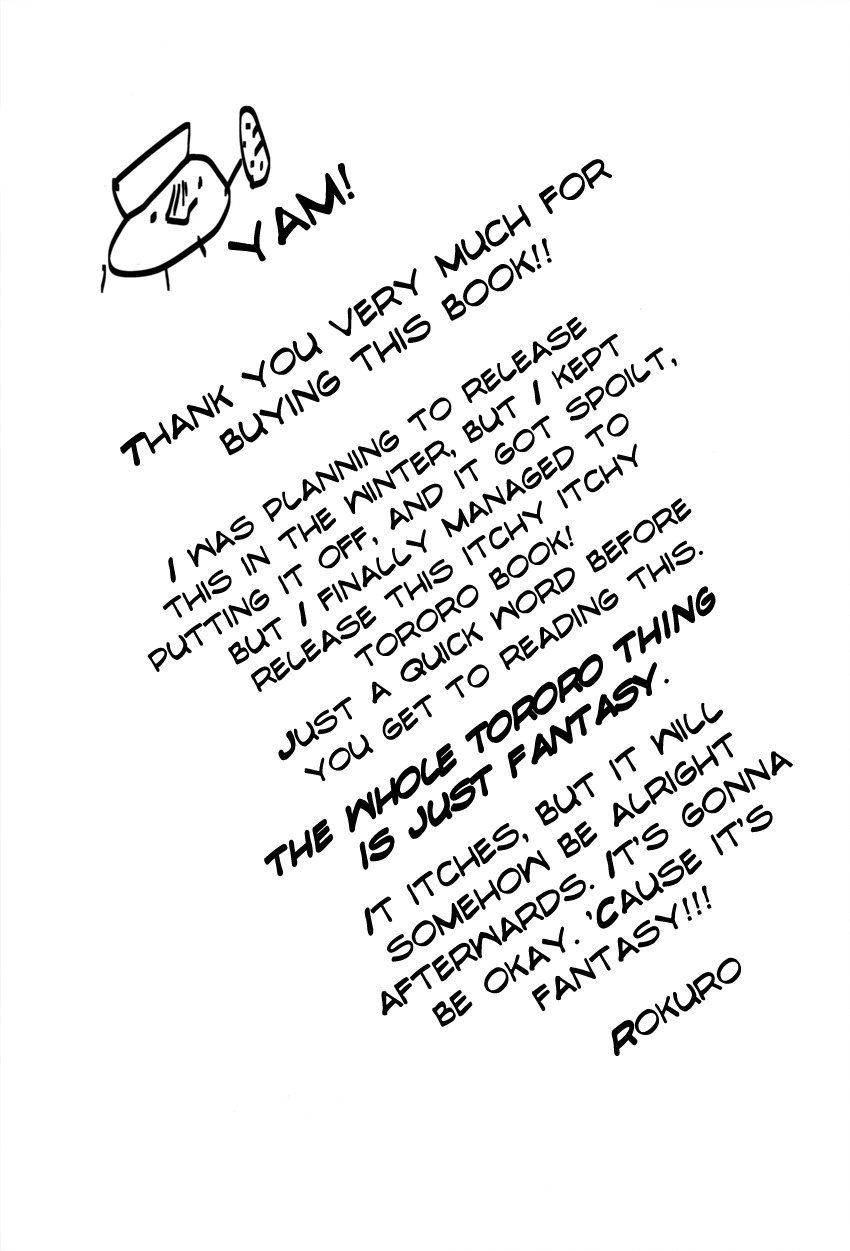 YAM!
THANK YOU VERY MUCH FOR
BUYING THIS BOOK!!
I WAS PLANNING TO RELEASE
THIS IN THE WINTER, BUT I KEPT
PUTTING IT OFF, AND IT GOT SPOILT,
BUT I FINALLY MANAGED TO
RELEASE THIS ITCHY ITCHY
TORORO BOOK!
JUST A QUICK WORD BEFORE
YOU GET TO READING THIS.
THE WHOLE TORORO THING
IS JUST FANTASY.
IT ITCHES, BUT IT WILL
SOMEHOW BE ALRIGHT
AFTERWARDS. IT'S GONNA
BE OKAY. 'CAUSE IT'S
FANTASY!!!
ROKURO